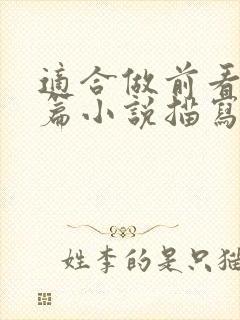 適合做前看
篇小說描寫
姓李的是只猫